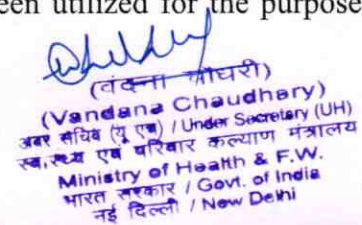 een utilized for the purpose
(वंदना चौधरी)
(Vandana Chaudhary)
अवर सचिव (यू एच) / Under Secretary (UH)
स्वास्थ्य एवं परिवार कल्याण मंत्रालय
Ministry of Health & F.W.
भारत सरकार / Govt. of India
नई दिल्ली / New Delhi